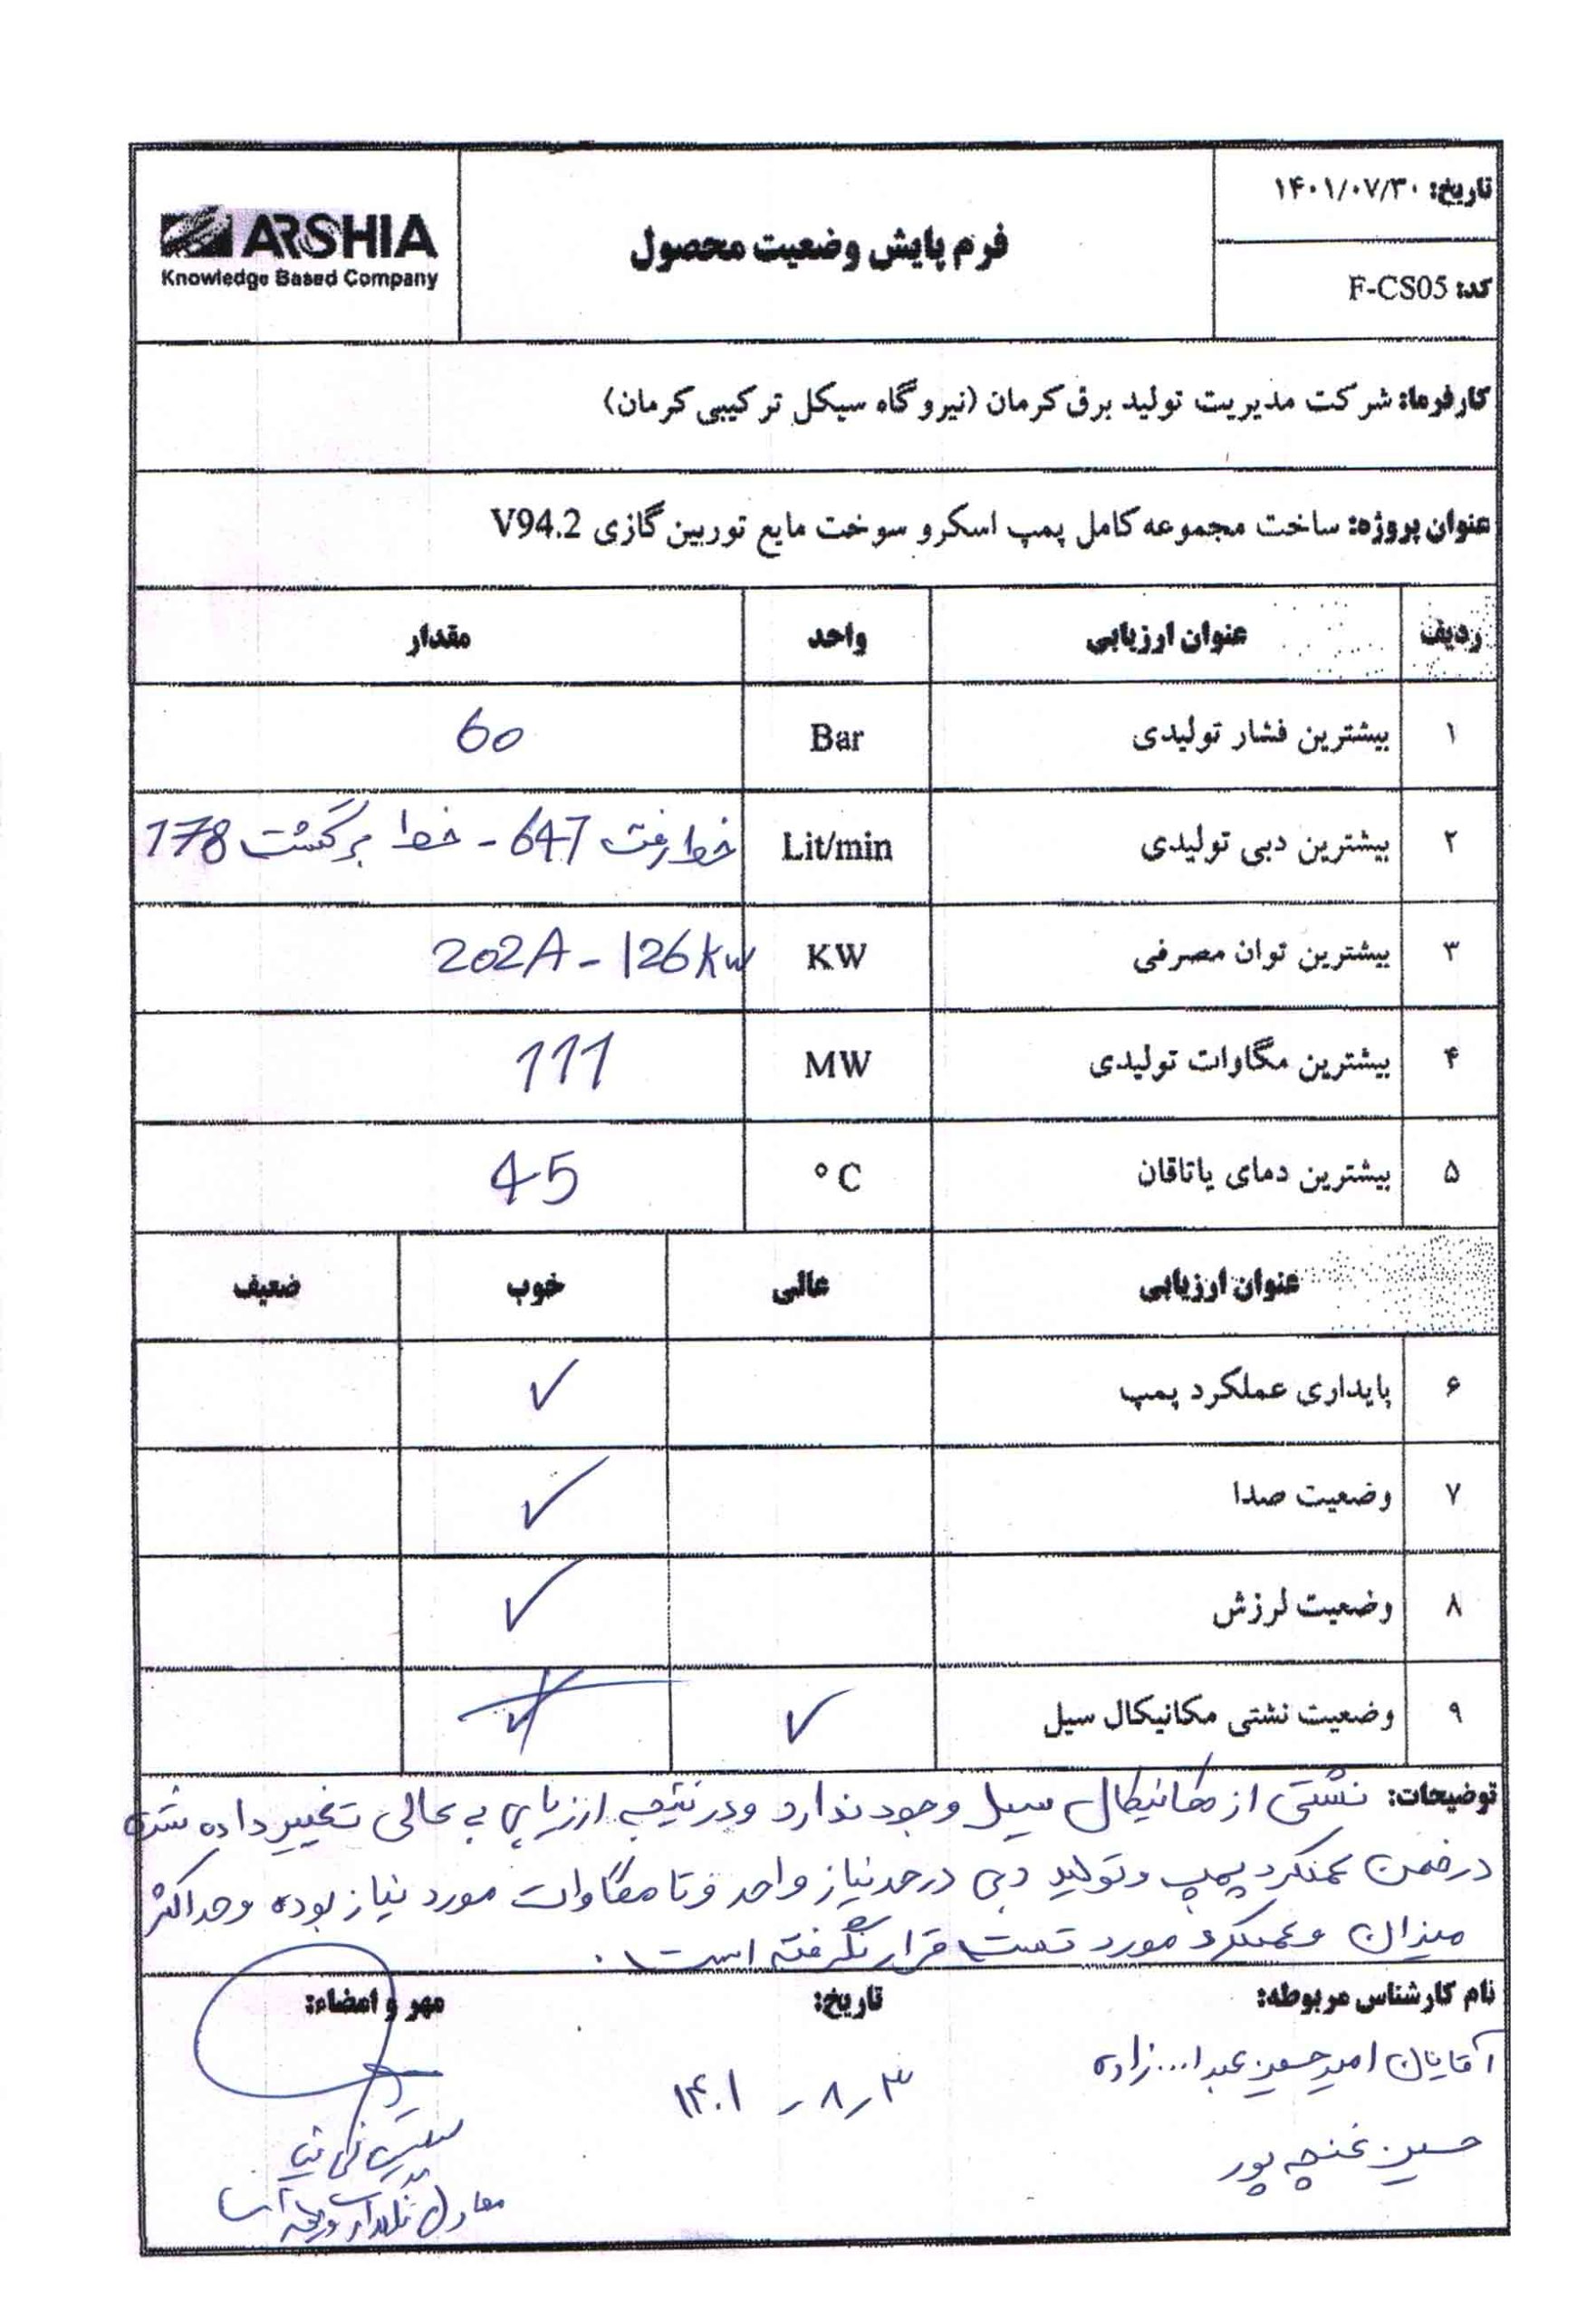 ARSHIA
Knowledge Based Company
فرم پایش وضعیت محصول
تاریخ: ۱۴۰۱/۰۷/۳۰
کد: F-CS05
کارفرما: شرکت مدیریت تولید برق کرمان (نیروگاه سیکل ترکیبی کرمان)
عنوان پروژه: ساخت مجموعه کامل پمپ اسکرو سوخت مایع توربین گازی V94.2
ردیف عنوان ارزیابی واحد مقدار
۱ بیشترین فشار تولیدی Bar 60
۲ بیشترین دبی تولیدی Lit/min خط رفت 647 - خط برگشت 178
۳ بیشترین توان مصرفی KW 202A - 126kw
۴ بیشترین مگاوات تولیدی MW 111
۵ بیشترین دمای یاتاقان °C 45
عنوان ارزیابی عالی خوب ضعیف
۶ پایداری عملکرد پمپ ✓
۷ وضعیت صدا ✓
۸ وضعیت لرزش ✓
۹ وضعیت نشتی مکانیکال سیل ✓
توضیحات: نشتی از مکانیکال سیل وجود ندارد و در نتیجه ارزیابی به عالی تغییر داده شده
در ضمن عملکرد پمپ و تولید دبی در حد نیاز واحد و تا مگاوات مورد نیاز بوده و حداکثر
میزان عملکرد مورد تست قرار نگرفته است.
نام کارشناس مربوطه: تاریخ: مهر و امضاء:
آقایان امیرحسین عبدا...زاده
۱۴۰۱-۸-۳
حسین غنچه پور
معاون